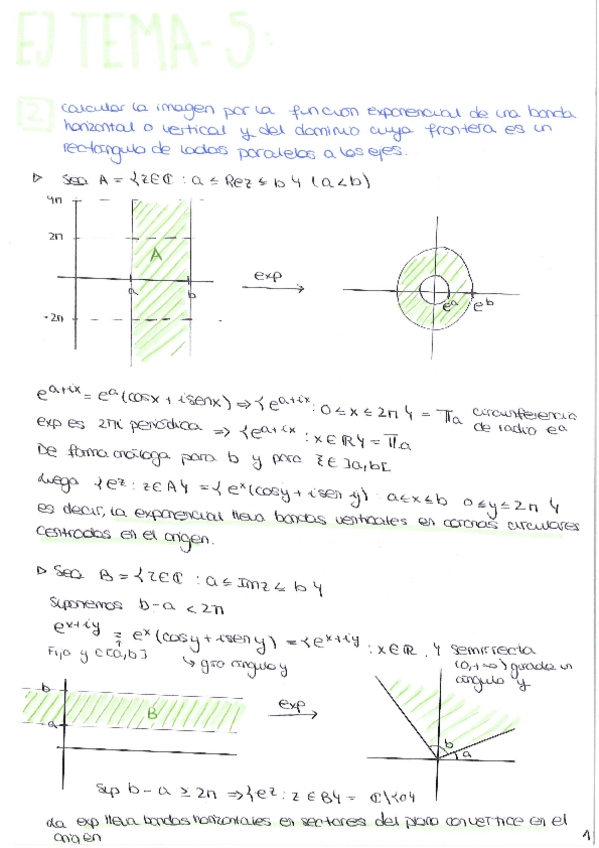 EJ TEMA-5:
2 calcular la imagen por la función exponencial de una banda
horizontal o vertical y del dominio cuya frontera es un
rectángulo de lados paralelos a los ejes.
▷ Sea A = {z∈ℂ : a ≤ Re z ≤ b} (a<b)
4π
2π
A
a
b
-2π
exp
e^a
e^b
e^{a+ix} = e^a (cosx + isenx) ⇒ {e^{a+ix} : 0 ≤ x ≤ 2π} = 𝕋a circunferencia
de radio e^a
exp es 2πi periódica ⇒ {e^{a+ix} : x∈ℝ} = 𝕋a
De forma análoga para b y para z∈]a,b[
Luego {e^z : z∈A} = {e^x (cosy + isen y) : a≤x≤b 0≤y≤2π}
es decir, la exponencial lleva bandas verticales en coronas circulares
centradas en el origen.
▷ Sea B = {z∈ℂ : a ≤ Im z ≤ b}
Suponemos b-a < 2π
e^{x+iy} = e^x (cosy + iseny) = {e^{x+iy} : x∈ℝ} semirrecta
Fijo y∈[a,b]
↳ giro ángulo y
(0,+∞) girada un
ángulo y
b
a
B
exp
b
a
Sup b-a ≥ 2π ⇒ {e^z : z∈B} = ℂ\{0}
La exp lleva bandas horizontales en sectores del plano con vértice en el
origen
1